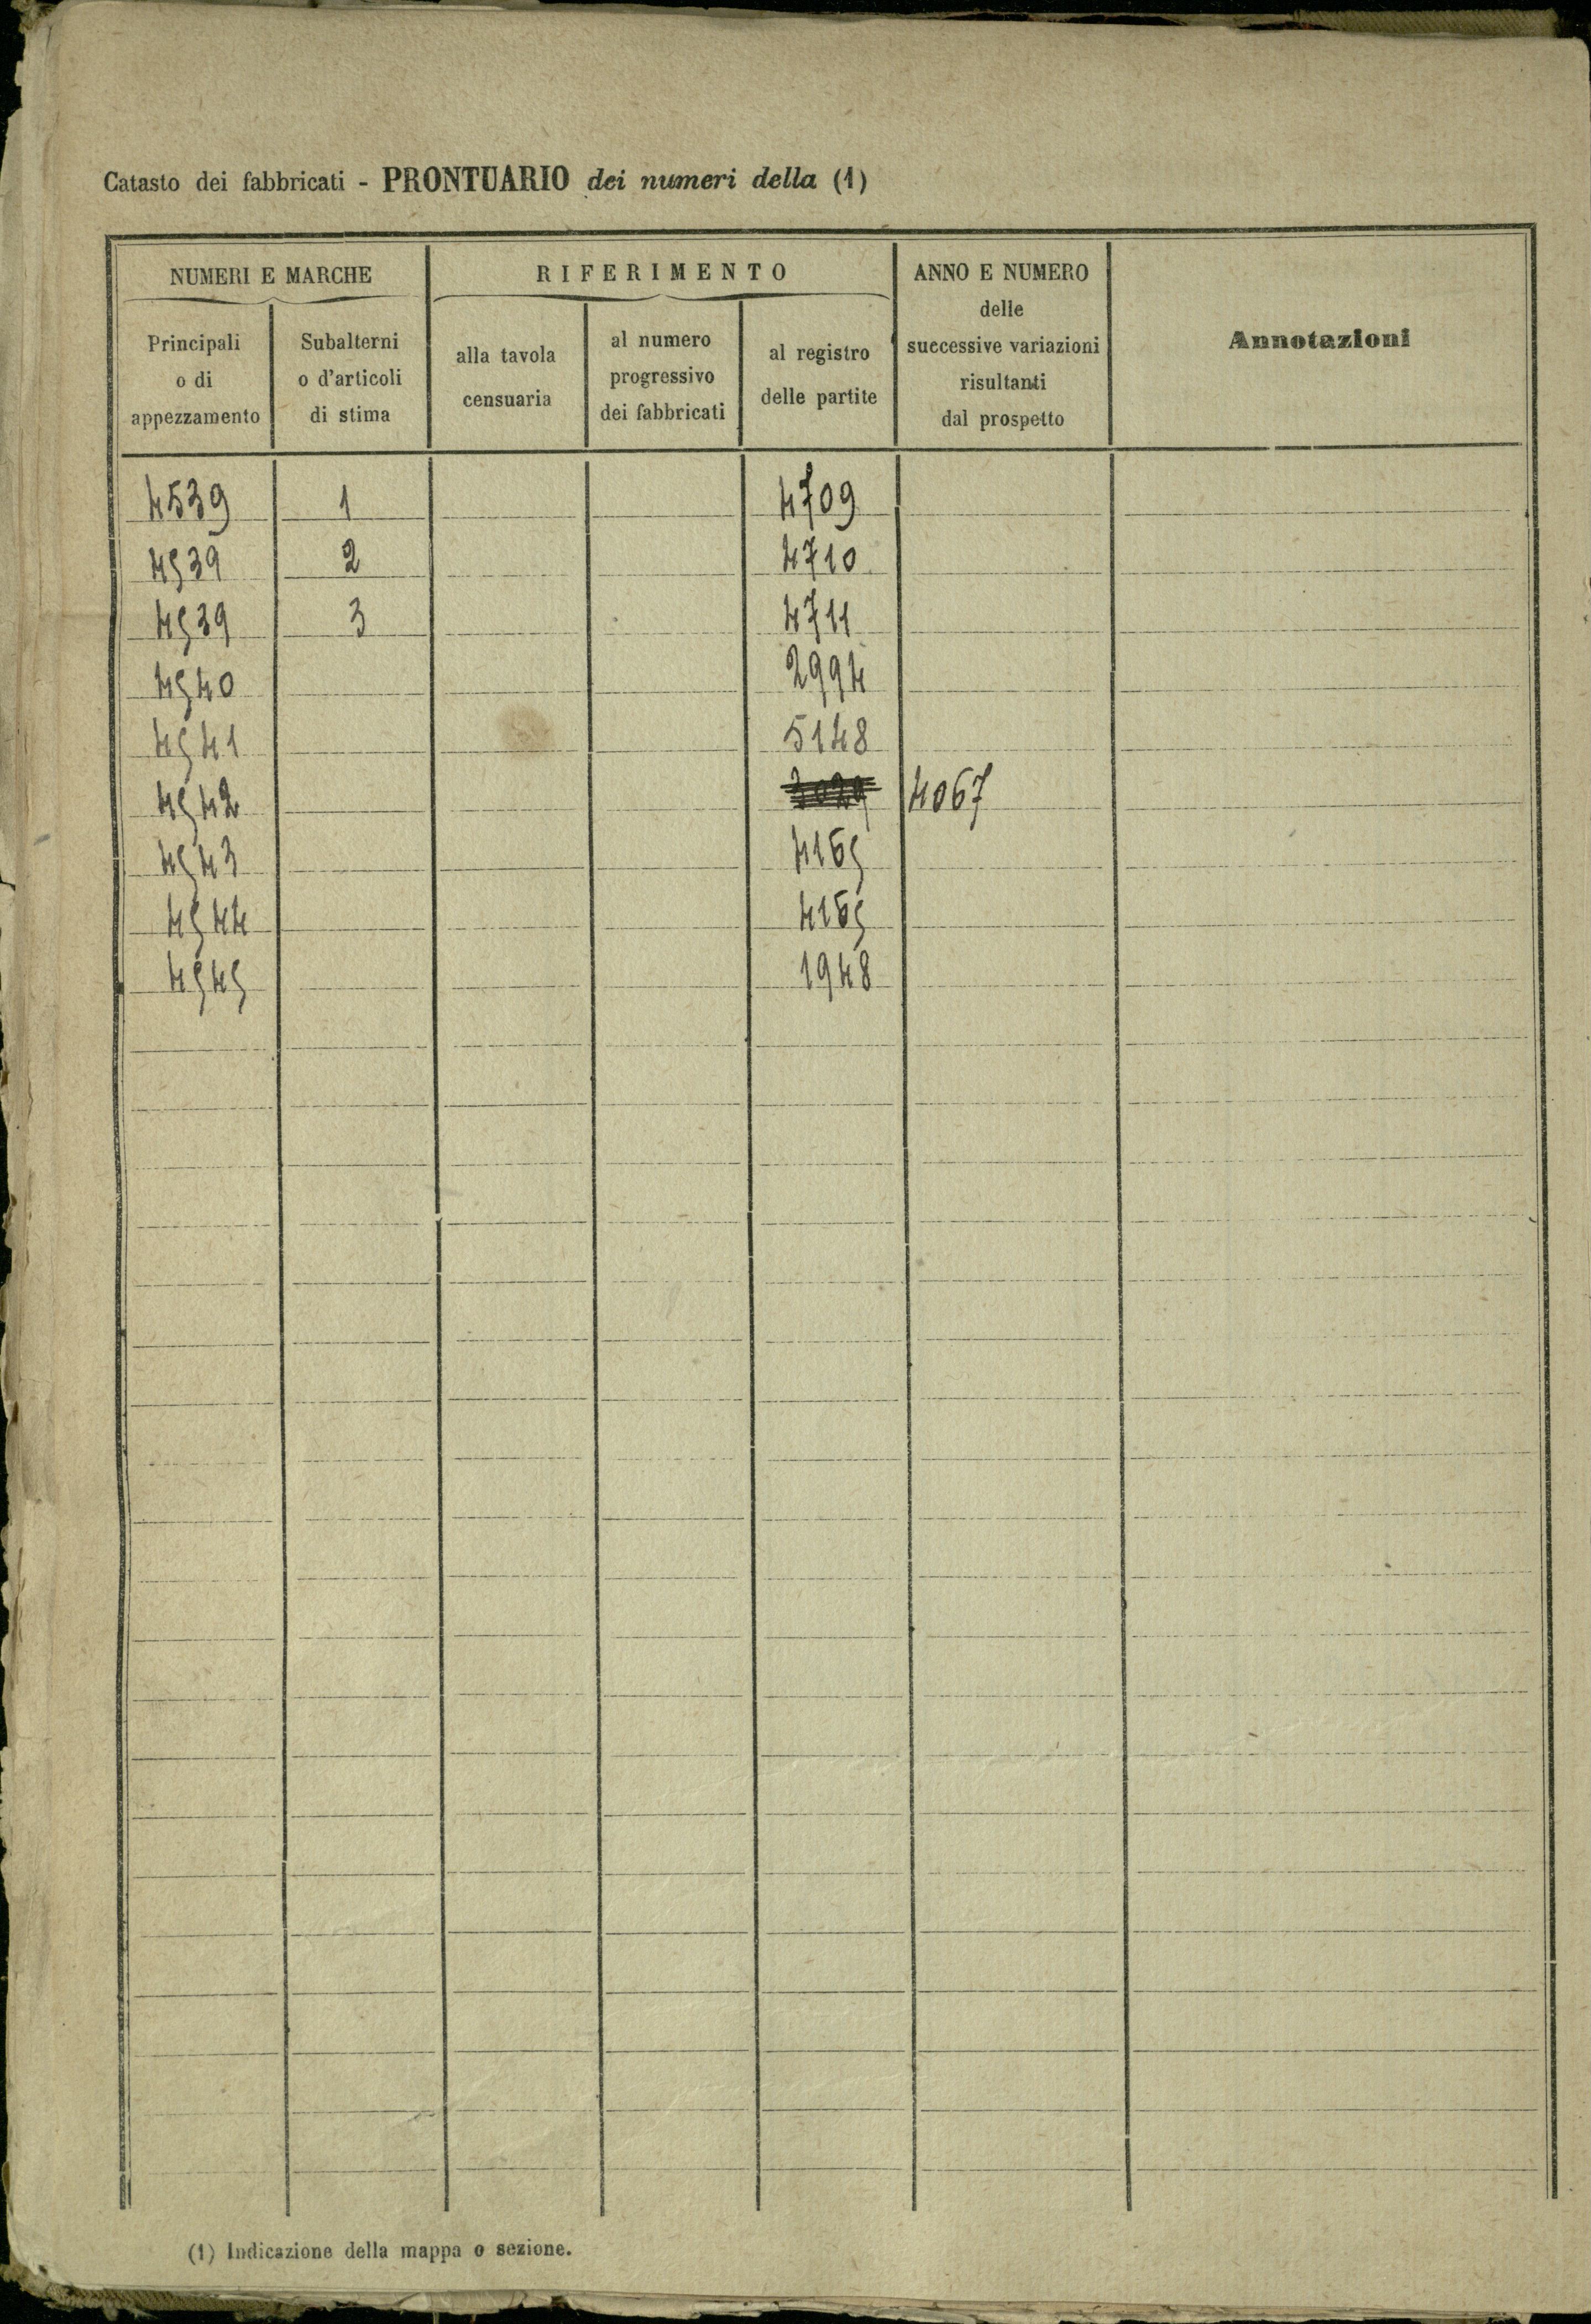 Catasto dei fabbricati - PRONTUARIO dei numeri della (1)
NUMERI E MARCHE
RIFERIMENTO
ANNO E NUMERO
delle
successive variazioni
risultanti
dal prospetto
Annotazioni
Principali
o di
appezzamento
Subalterni
o d'articoli
di stima
alla tavola
censuaria
al numero
progressivo
dei fabbricati
al registro
delle partite
4539 1 4709
4539 2 4710
4539 3 4711
4540 2994
4541 5148
4542 4067
4543 4165
4544 4165
4545 1948
(1) Indicazione della mappa o sezione.